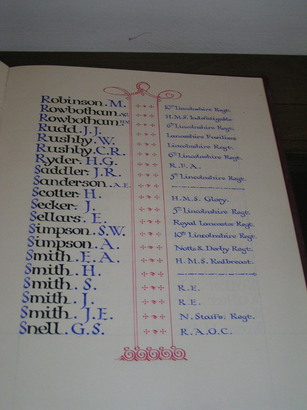 Robinson. M. 10th Lincolnshire Regt.
Rowbotham. H.M.S. Indefatigable
Rowbotham. 6th Lincolnshire Regt.
Rudd. J. J. Lancashire Fusiliers
Rushby. W. Lincolnshire Regt.
Rushby. C. R. 6th Lincolnshire Regt.
Ryder. H. G. R. F. A.
Saddler. J. R. 5th Lincolnshire Regt.
Sanderson. A. E.
Scotter. H. H.M.S. Glory.
Secker. J. 5th Lincolnshire Regt.
Sellars. E. Royal Lancaster Regt.
Simpson. S. W. 10th Lincolnshire Regt.
Simpson. A. Notts & Derby Regt.
Smith. E. A. H. M. S. Redbreast.
Smith. H.
Smith. S. R. E.
Smith. J. R. E.
Smith. J. E. N. Staffs. Regt.
Snell. G. S. R. A. O. C.